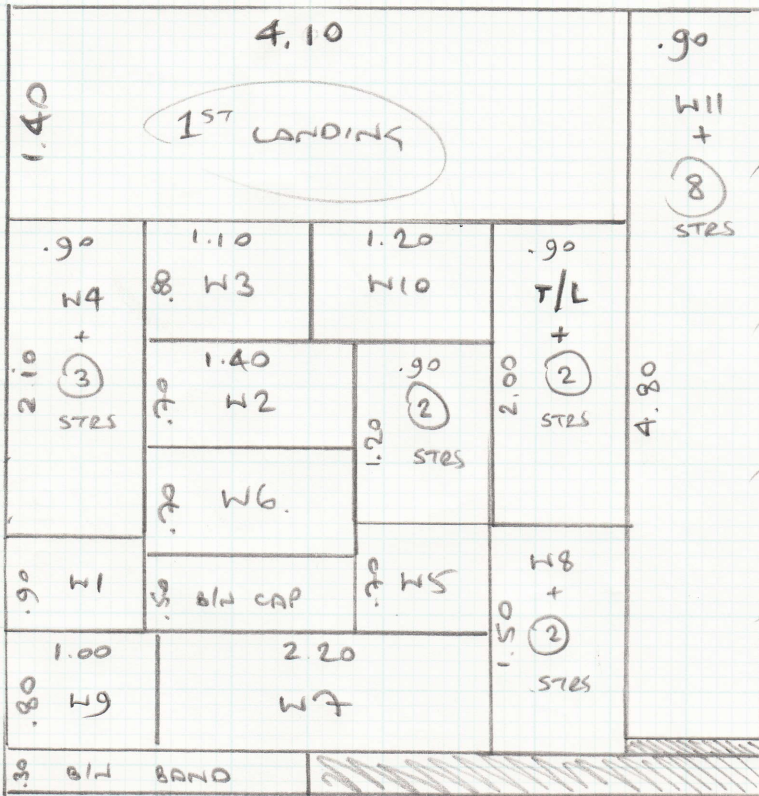 4.10
1.40
1ST LANDING
.90
W11
+
8
STRS
4.80
.90
W4
+
3
STRS
2.10
1.10
.80 W3
1.20
W10
.90
T/L
+
2
STRS
2.00
1.40
.70 W2
.90
2
STRS
1.20
.70 W6.
.90 W1
.50 B/N CAP
.70 W5
W8
+
2
STRS
1.50
1.00
.80 W9
2.20
W7
.30 B/N BAND